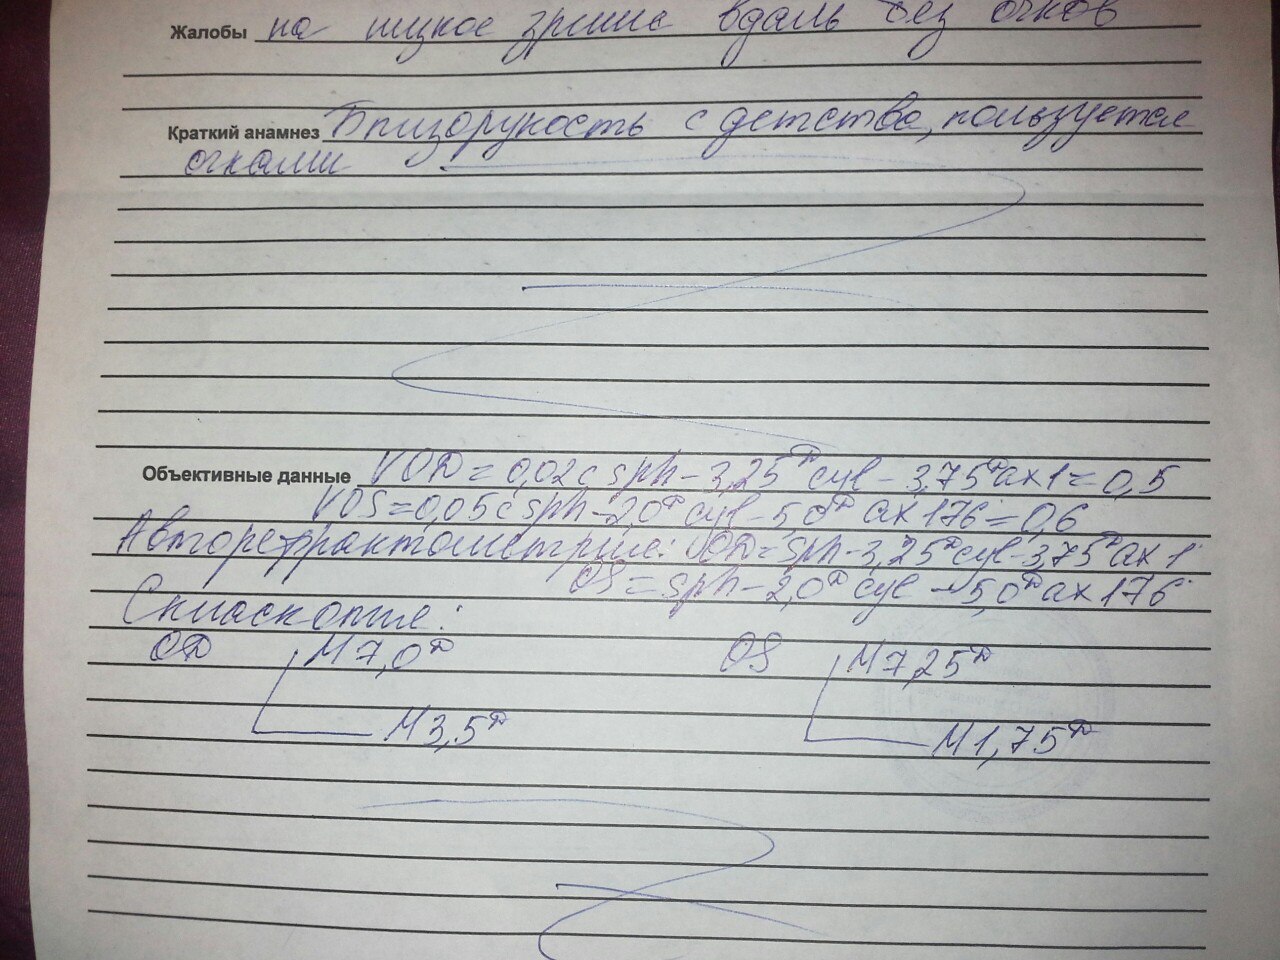 Жалобы на низкое зрение вдаль без очков
Краткий анамнез Близорукость с детства, пользуется
очками
Объективные данные VOD = 0,02 с sph - 3,25ᴰ cyl - 3,75ᴰ ax 1 = 0,5
VOS = 0,05 с sph - 2,0ᴰ cyl - 5,0ᴰ ax 176 = 0,6
Авторефрактометрия: OD = sph - 3,25ᴰ cyl - 3,75ᴰ ax 1
OS = sph - 2,0ᴰ cyl - 5,0ᴰ ax 176
Скиаскопия:
OD M 7,0ᴰ OS M 7,25ᴰ
M 3,5ᴰ M 1,75ᴰ